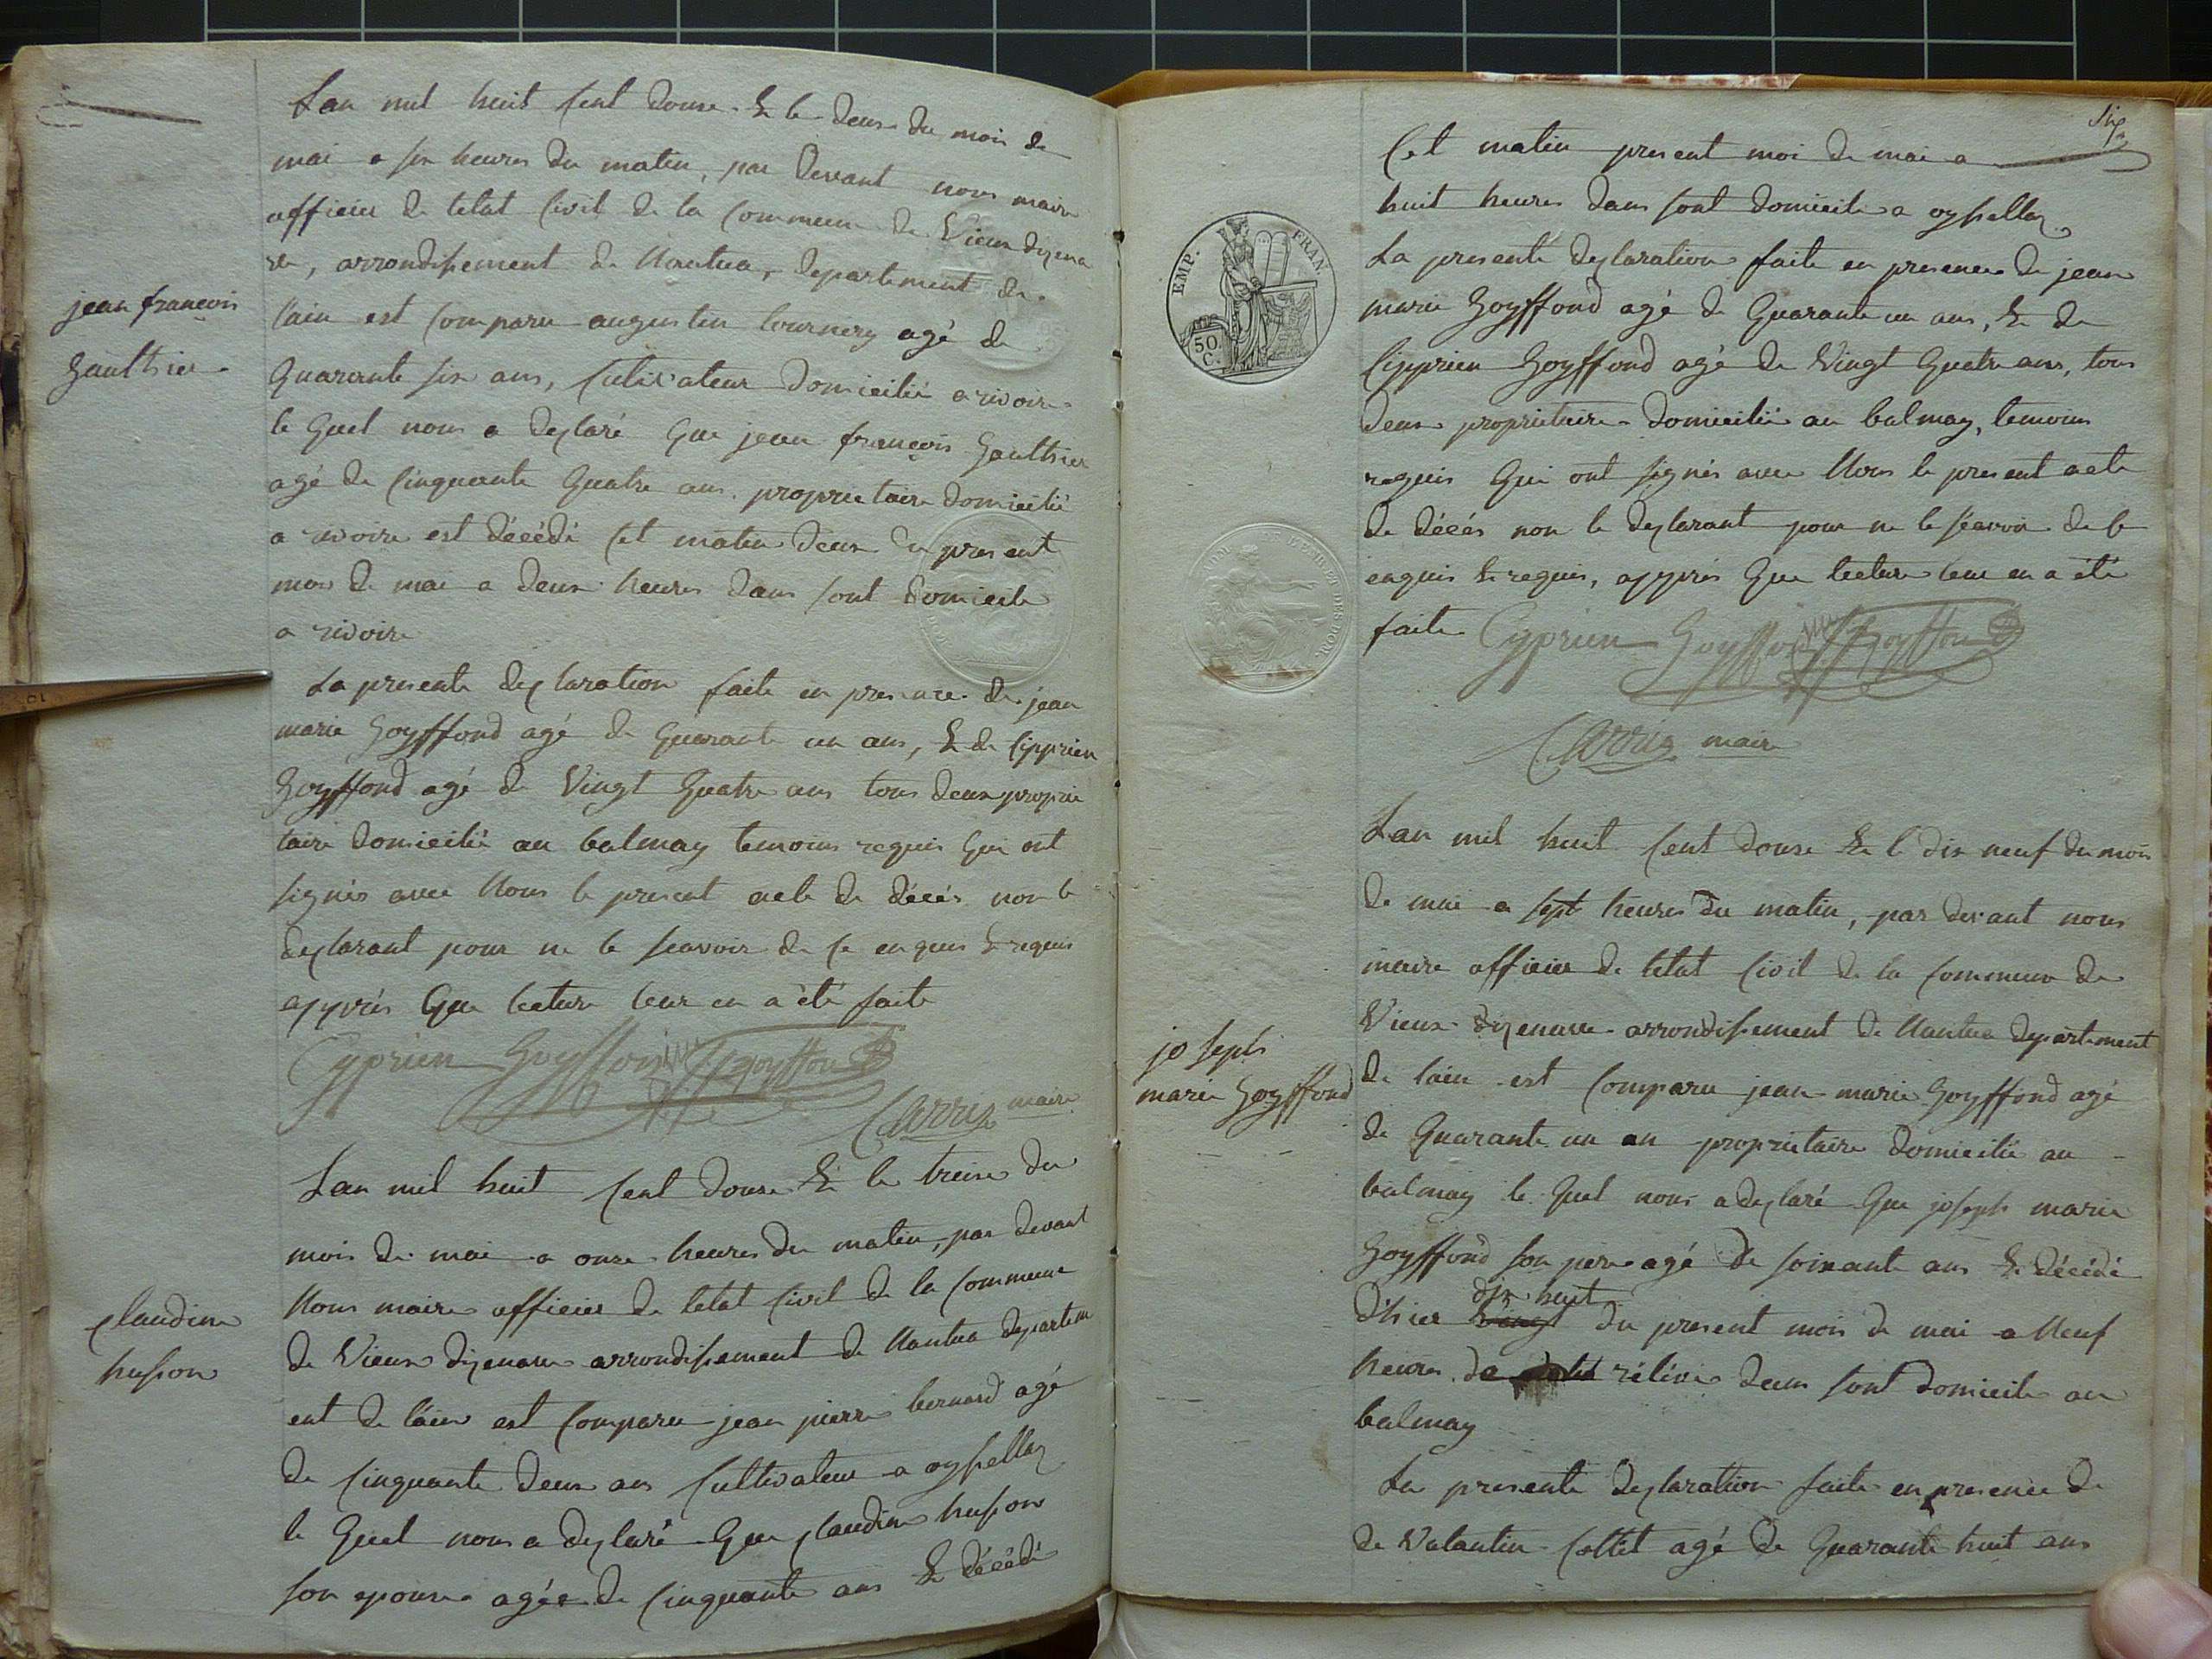 Lan mil huit Cent Douse & le Deux du mois de
mai a six heures du matin, par Devant nous maire
officier de letat Civil de la Commeune de Vieux dizena
ve, arrondissement de Nantua, Departement de
lain est Comparu augustin tournery agé de
jean françois
Gaulthier
Quarante six ans, Cultivateur Domicilié a rivoire
le Quel nous a declaré Que jean françois Gaulthier
agé de Cinquante Quatre ans proprietaire Domicilié
a rivoire est décédé Cet matin Deux du present
mois de mai a Deux heures Dans sont Domicile
a rivoire
La presente declaration faite en presence de jean
marie Goyffond agé de Quarante un ans, & de Cipprien
Goyffond agé de Vingt Quatre ans tous Deux proprie
taire Domicilié au balmay temoins requis Qui ont
signés avec Nous le present acte de décés non le
declarant pour ne le scavoir de Ce enquis & requis
apprés Que lecture leur en a été faite
Cyprien Goyffon jm Goyffon
Carrig maire
Lan mil huit Cent Douse & le treise du
mois de mai a onse heures du matin, par devant
Nous maire officier de letat Civil de la Commeune
de Vieux dizenave arrondissement de Nantua departem
ent de lain est Comparu jean pierre bernard agé
de Cinquante Deux ans Cultivateur a oyssellaz
le Quel nous a declaré Que Claudine husson
son epouse agée de Cinquante ans & décédé
Claudine
husson
Six
Cet matin present moi de mai a
huit heures Dans sont Domicile a oyssellaz
La presente declaration faite en presence de jean
marie Goyffond agé de Quarante un ans, & de
Cipprien Goyffond agé de Vingt Quatre ans, tous
Deux proprietaire Domicilié au balmay, temoins
requis Qui ont signés avec Nous le present acte
de décés non le declarant pour ne le scavoir de Ce
enquis & requis, apprés Que lecture leur en a été
faite Cyprien Goyffon jm Goyffon
Carrig maire
EMP. FRAN.
50
C.
Lan mil huit Cent Douse & le dix neuf du mois
de mai a sept heures du matin, par devant nous
maire officier de letat Civil de la Commeune de
Vieux dizenave arrondissement de Nantua departement
de lain est Comparu jean marie Goyffond agé
de Quarante un an proprietaire Domicilié au
balmay le Quel nous a declaré Que joseph marie
Goyffond son pere agé de soixante ans & décédé
dix huit
D'hier Vingt du present mois de mai a Neuf
heures de rélivée dans sont Domicile au
balmay
La presente declaration faite en presence de
de Valantin Cottét agé de Quarante huit ans
joseph
marie Goyffond